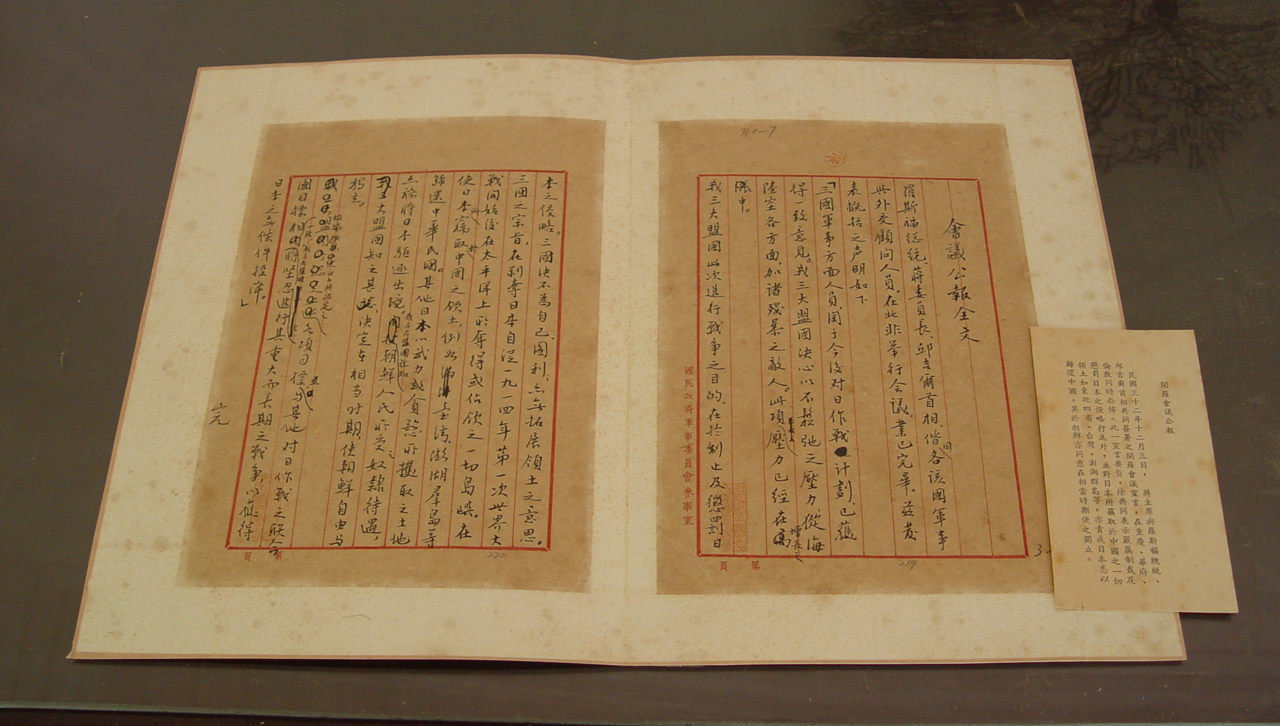 會議公報全文
羅斯福総統、蔣委員長、邱吉爾首相、偕各該國軍事
與外交顧問人員,在北非舉行会議,業已完畢。茲發
表概括之声明如下
「三國軍事方面人員関于今後对日作戰計劃已獲
得一致意見。我三大盟國決心以不鬆弛之壓力從海
陸空各方面加諸殘暴之敵人。此項壓力已經在增長之
中。
我三大盟國此次進行戰争之目的,在於制止及懲罰日
第 頁
219
國民政府軍事委員會參事室
本之侵略。三國決不為自己圖利,亦無拓展領土之意思。
三國之宗旨,在剥奪日本自從一九一四年第一次世界大
戰開始後在太平洋上所奪得或佔領之一切島嶼。在
使日本竊取中國之領土,例如臺湾澎湖群島等
歸還中華民國。其他日本以武力或貪慾所攫取之土地
亦務將日本驅逐出境。我三大盟國稔知朝鮮人民所受之奴隸待遇,
決定在相当时期,使朝鮮自由与
独立。
各項目標与其他对日作戰之联合
國目標相同將堅忍進行其重大而長期之戰争,以獲得
日本之無條件投降。」
第 頁
220
開羅會議公報
民國三十二年十二月三日,蔣主席與羅斯福總統、
邱吉爾首相共同簽署之開羅會議宣言,在重慶、華府、
倫敦同時公佈。此一宣言要旨,除共同表示嚴厲制裁及
懲罰日本之侵略行為外,並對日本所竊取於中國之一切
領土如東北四省、台灣、澎湖群島等,亦責成日本悉以
歸還中國。其於朝鮮亦同意在相當時期使之獨立。